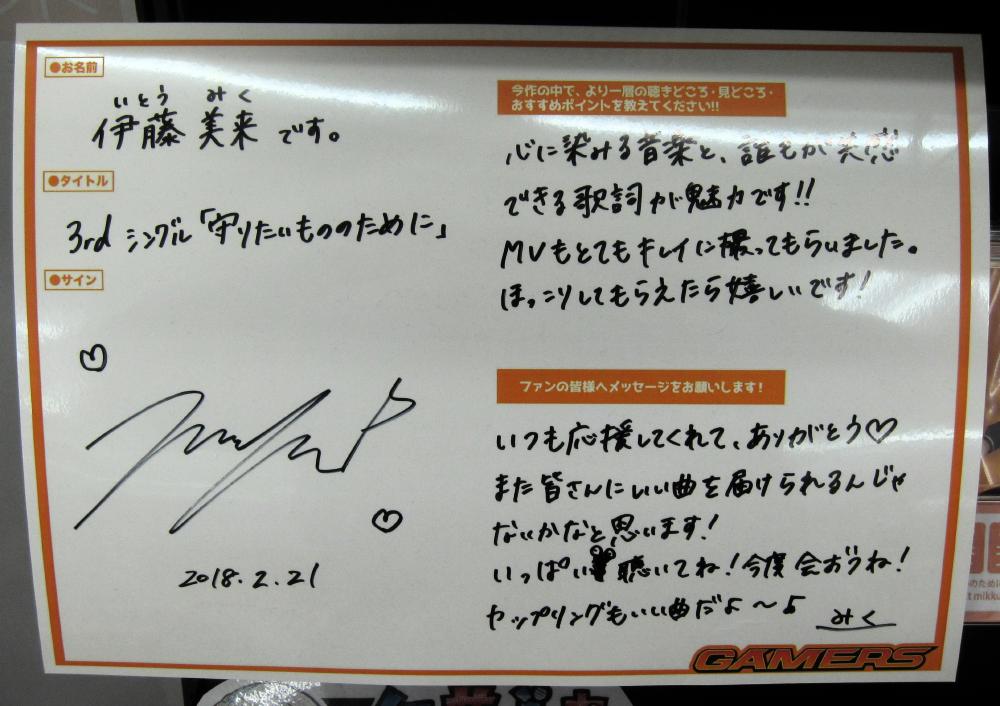 ●お名前
いとう みく
伊藤 美来 です。
●タイトル
3rd シングル「守りたいもののために」
●サイン
2018.2.21
今作の中で、より一層の聴きどころ・見どころ・
おすすめポイントを教えてください!!
心に染みる音楽と、誰もが共感
できる歌詞が魅力です!!
MVもとてもキレイに撮ってもらいました。
ほっこりしてもらえたら嬉しいです!
ファンの皆様へメッセージをお願いします!
いつも応援してくれて、ありがとう♡
また皆さんにいい曲を届けられるんじゃ
ないかなと思います!
いっぱい聴いてね!今度会おうね!
カップリングもいい曲だよ〜♪
みく
GAMERS